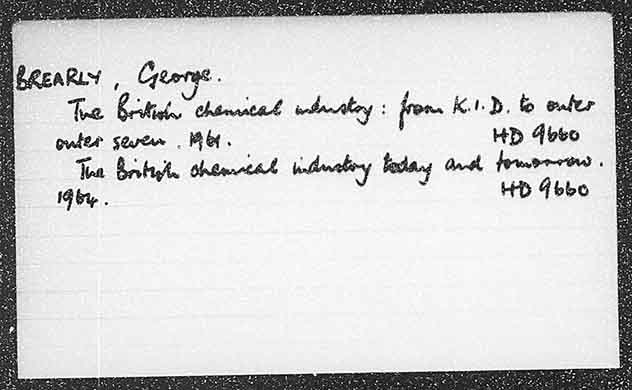 BREARLY, George.
The British chemical industry: from K.I.D. to outer
outer seven. 1961. HD 9660
The British chemical industry today and tomorrow.
1964. HD 9660